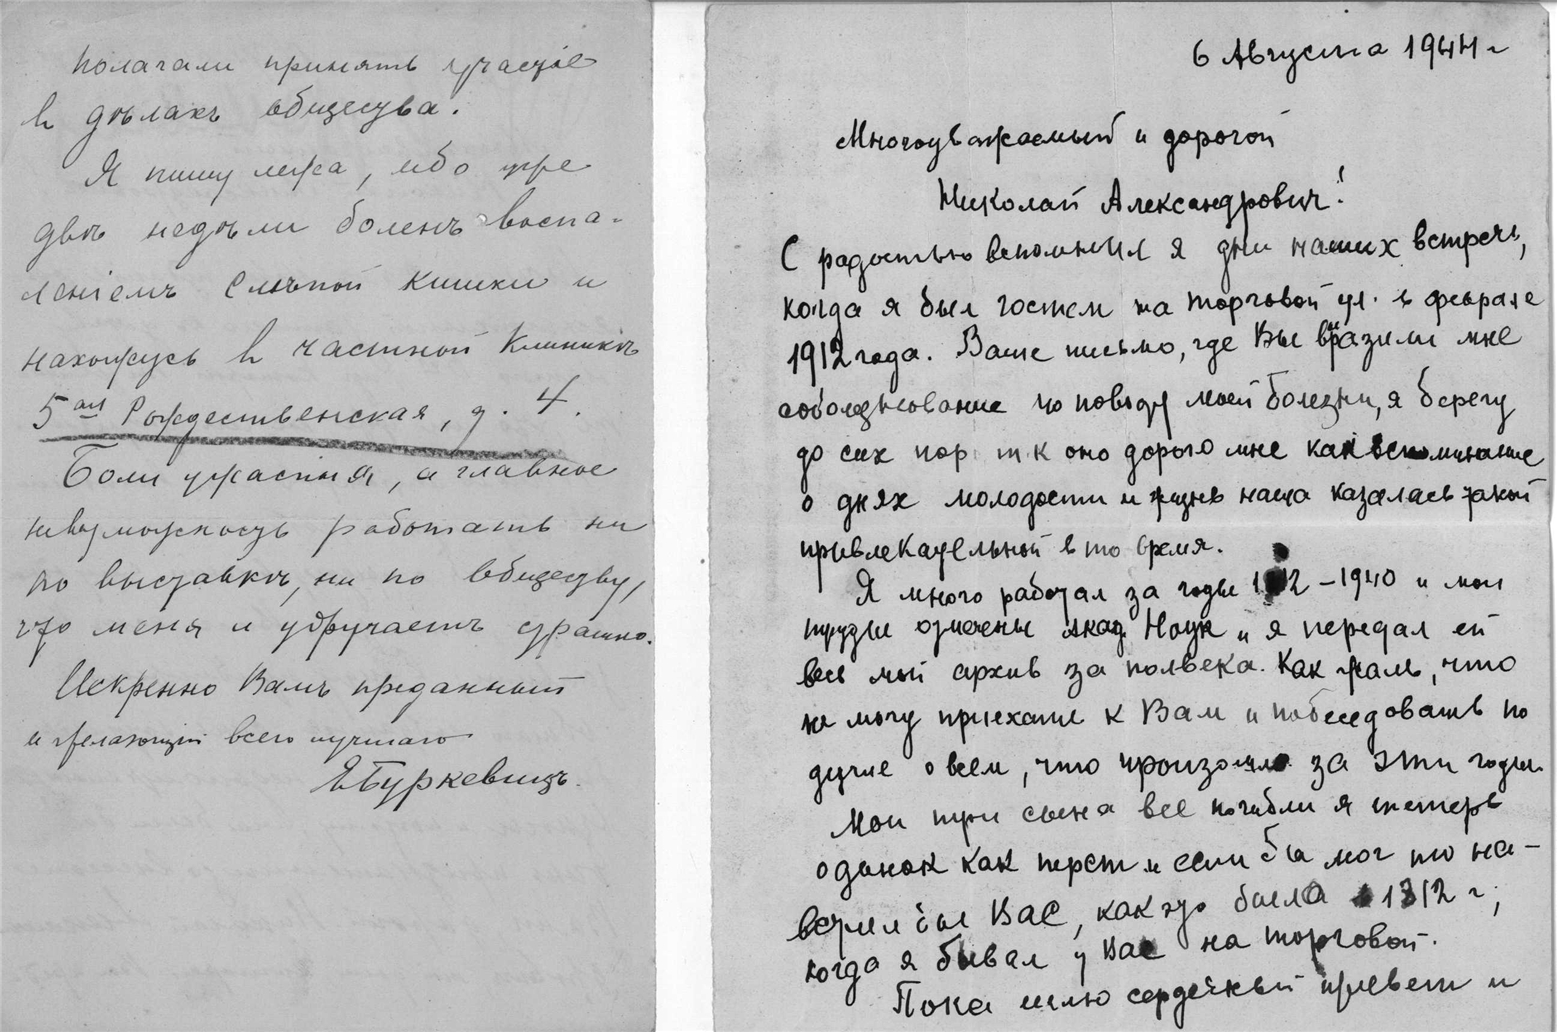 полагали принять участіе
въ дѣлахъ общества.
Я пишу лежа, ибо уже
двѣ недѣли боленъ воспа-
леніемъ слѣпой кишки и
нахожусь въ частной клиникѣ
5ая Рождественская, д. 4.
Боли ужасныя, а главное
невозможность работать ни
по выставкѣ, ни по обществу,
что меня и удручаетъ страшно.
Искренно Вамъ преданный
и желающій всего лучшаго
Буркевичъ.
6 Августа 1944 г
Многоуважаемый и дорогой
Николай Александрович!
С радостью вспомнил я дни наших встреч,
когда я был гостем на Торговой ул. в феврале
1912 года. Ваше письмо, где Вы выразили мне
соболезнование по поводу моей болезни, я берегу
до сих пор т к оно дорого мне как вспоминание
о днях молодости и жизнь наша казалась такой
привлекательной в то время.
Я много работал за годы 1912 – 1940 и мои
труды отмечены Акад Наук и я передал ей
весь мой архив за полвека. Как жаль, что
не могу приехать к Вам и побеседовать по
душе о всем, что произошло за эти годы.
Мои три сына все погибли я теперь
одинок как перст и если бы мог то на-
вестил бы Вас, как это было в 1912 г,
когда я бывал у Вас на Торговой.
Пока шлю сердечный привет и